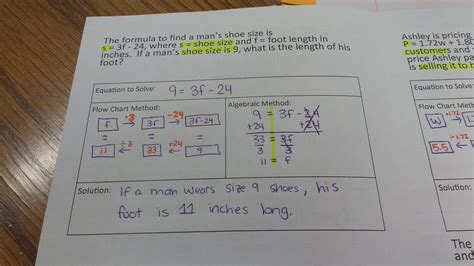 The formula to find a man's shoe size is
s = 3f - 24, where s = shoe size and f = foot length in
inches. If a man's shoe size is 9, what is the length of his
foot?
Equation to Solve: 9 = 3f - 24
Flow Chart Method:
f ·3 3f -24 3f-24
= = =
11 ÷3 33 +24 9
Algebraic Method:
9 = 3f - 24
+24 +24
33 = 3f
3 3
11 = f
Solution: If a man wears size 9 shoes, his
foot is 11 inches long.
Ashley is pricing
P = 1.72w + 1.80
customers and
price Ashley pa
is selling it to
Equation to Solve:
Flow Chart Method:
w
5.5
Solution:
The
and